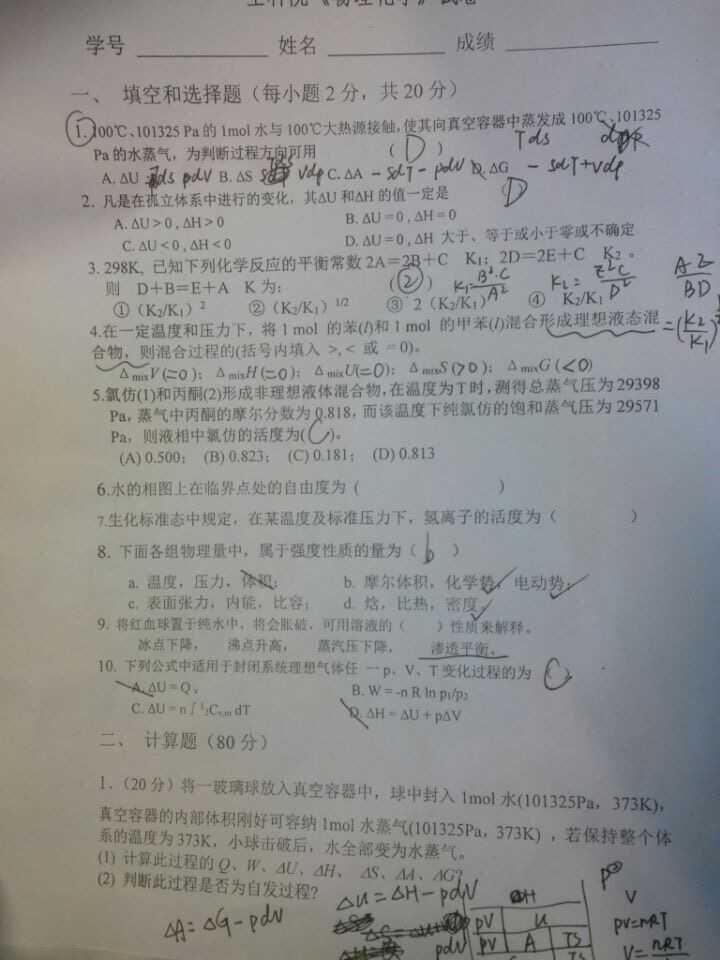 《物理化学》试卷
学号 姓名 成绩
一、 填空和选择题（每小题 2 分，共 20 分）
1. 100℃、101325 Pa 的 1mol 水与 100℃大热源接触，使其向真空容器中蒸发成 100℃、101325
Pa 的水蒸气，为判断过程方向可用 （ D ） Tds
A. ΔU Tds pdV B. ΔS Vdp C. ΔA -SdT-pdV D. ΔG -SdT+Vdp
2. 凡是在孤立体系中进行的变化，其ΔU 和ΔH 的值一定是 D
A. ΔU > 0 , ΔH > 0 B. ΔU = 0 , ΔH = 0
C. ΔU < 0 , ΔH < 0 D. ΔU = 0 , ΔH 大于、等于或小于零或不确定
3. 298K, 已知下列化学反应的平衡常数 2A＝2B＋C K₁; 2D＝2E＋C K₂ 。
则 D＋B＝E＋A K 为: （ ② ） K₁=B²·C/A² K₂=E²C/D² A·E/BD
① (K₂/K₁)² ② (K₂/K₁)^1/2 ③ 2 (K₂/K₁) ④ K₂/K₁
4.在一定温度和压力下，将 1 mol 的苯(l)和 1 mol 的甲苯(l)混合形成理想液态混 =(K₂/K₁)
合物，则混合过程的(括号内填入 >, < 或 = 0)。
Δ mixV (=0); Δ mixH (=0); Δ mixU(=0); Δ mixS (>0); Δ mixG (<0)
5.氯仿(1)和丙酮(2)形成非理想液体混合物,在温度为 T 时,测得总蒸气压为 29398
Pa, 蒸气中丙酮的摩尔分数为 0.818, 而该温度下纯氯仿的饱和蒸气压为 29571
Pa, 则液相中氯仿的活度为( C )。
(A) 0.500; (B) 0.823; (C) 0.181; (D) 0.813
6.水的相图上在临界点处的自由度为（ ）
7.生化标准态中规定，在某温度及标准压力下，氢离子的活度为（ ）
8. 下面各组物理量中，属于强度性质的量为（ b ）
a. 温度，压力，体积; b. 摩尔体积，化学势，电动势;
c. 表面张力，内能，比容; d. 焓，比热，密度。
9. 将红血球置于纯水中，将会胀破，可用溶液的（ ）性质来解释。
冰点下降， 沸点升高， 蒸汽压下降， 渗透平衡。
10. 下列公式中适用于封闭系统理想气体任 一 p、V、T 变化过程的为 C
A. ΔU = Q ᵥ B. W = -n R ln p₁/p₂
C. ΔU = n∫¹₂Cv,m dT D. ΔH = ΔU + pΔV
二、 计算题（80 分）
1.（20 分）将一玻璃球放入真空容器中，球中封入 1mol 水(101325Pa，373K),
真空容器的内部体积刚好可容纳 1mol 水蒸气(101325Pa，373K) ，若保持整个体
系的温度为 373K，小球击破后，水全部变为水蒸气。
(1) 计算此过程的 Q、W、ΔU、ΔH、 ΔS、ΔA、ΔG?
(2) 判断此过程是否为自发过程?
ΔU=ΔH-pdV H p⊖
ΔA=ΔG-pdV pV U V
pdV pV A TS pV=nRT
TS V=nRT